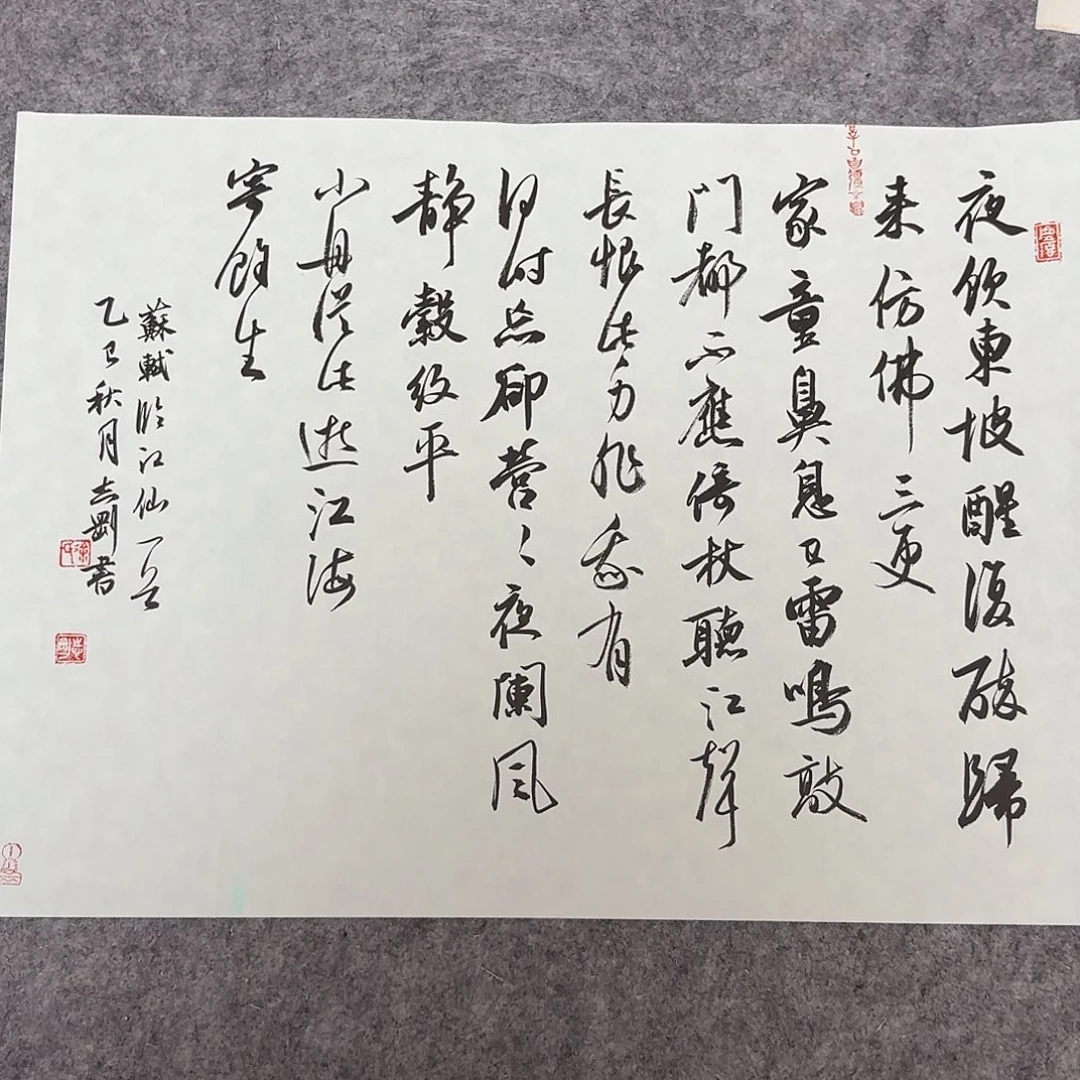 夜饮東坡醒復醉歸
来仿佛三更
家童鼻息已雷鳴敲
门都不應倚杖聽江聲
長恨此身非我有
何时忘卻營〻夜闌風
靜縠纹平
小舟從此逝江海
寄餘生
蘇軾临江仙一首
乙巳秋月志剛書